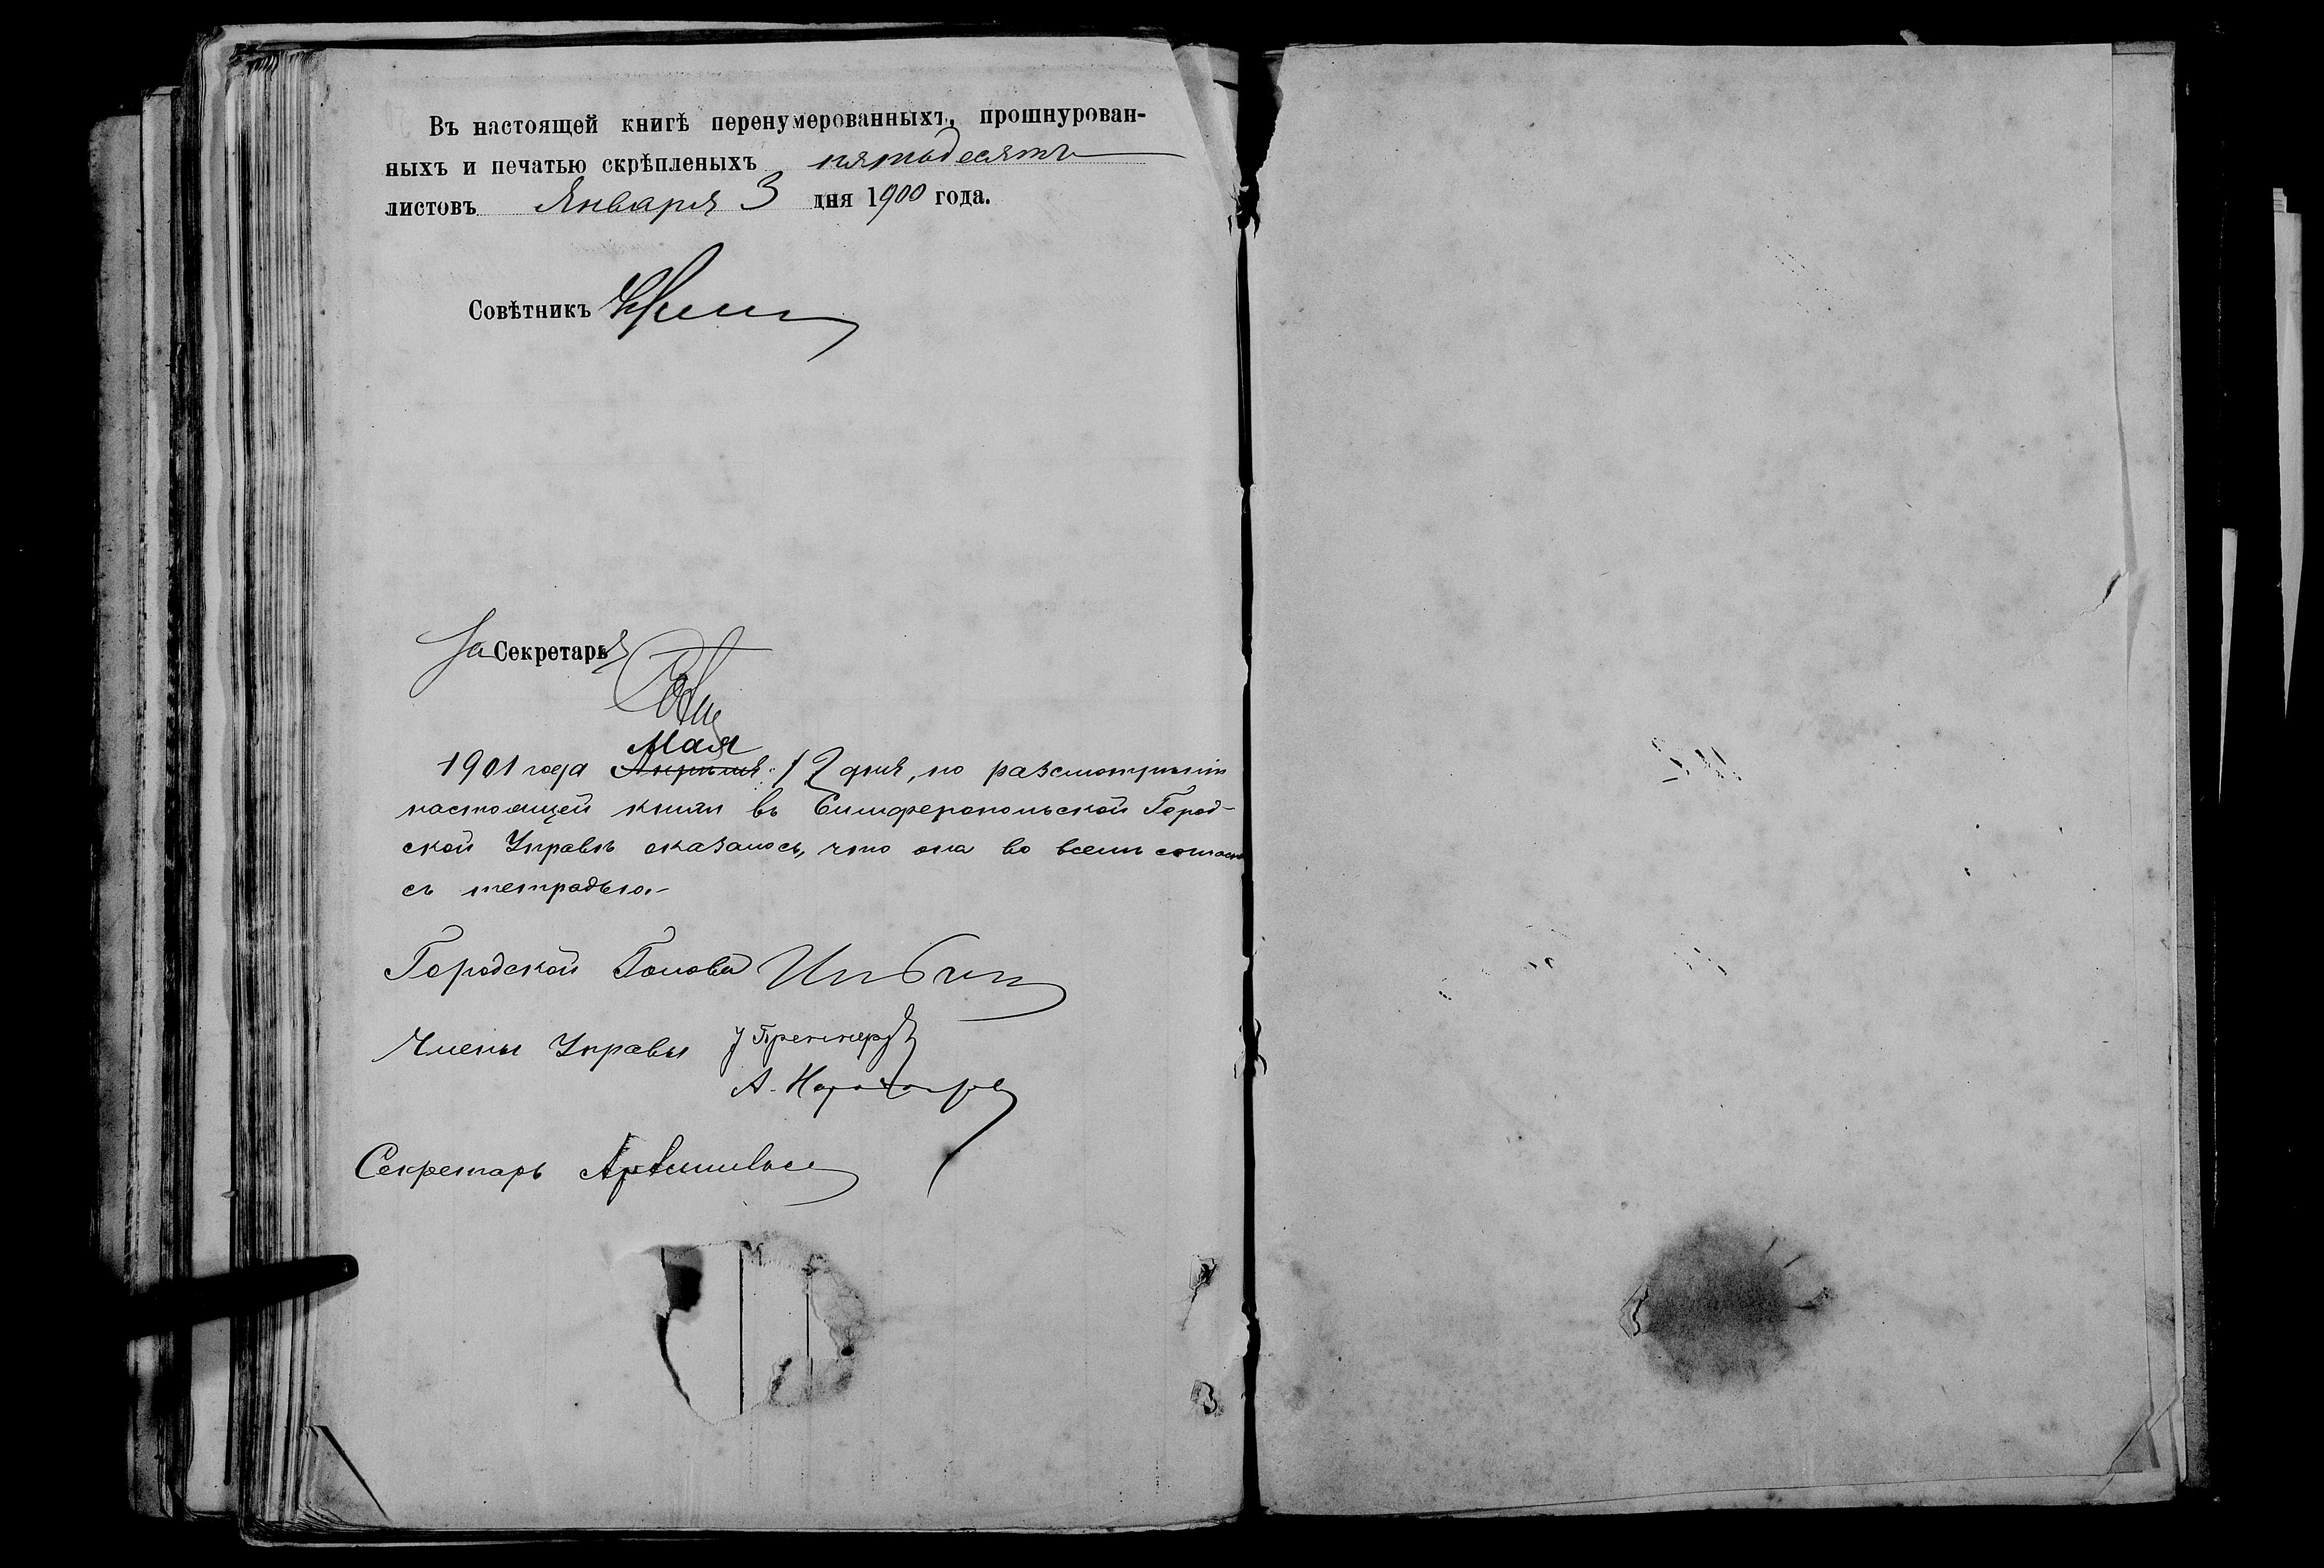 Въ настоящей книгѣ перенумерованныхъ, прошнурован-
ныхъ и печатью скрѣпленыхъ пятьдесятъ
листовъ Января 3 дня 1900 года.
Совѣтникъ
За Секретаря
Мая
1901 года Апрѣля 12 дня, по разсмотрѣніи
настоящей книги въ Симферопольской Город-
ской Управѣ оказалось, что она во всемъ согласна
съ тетрадью.
Городской Голова
Члены Управы
А.
Секретарь